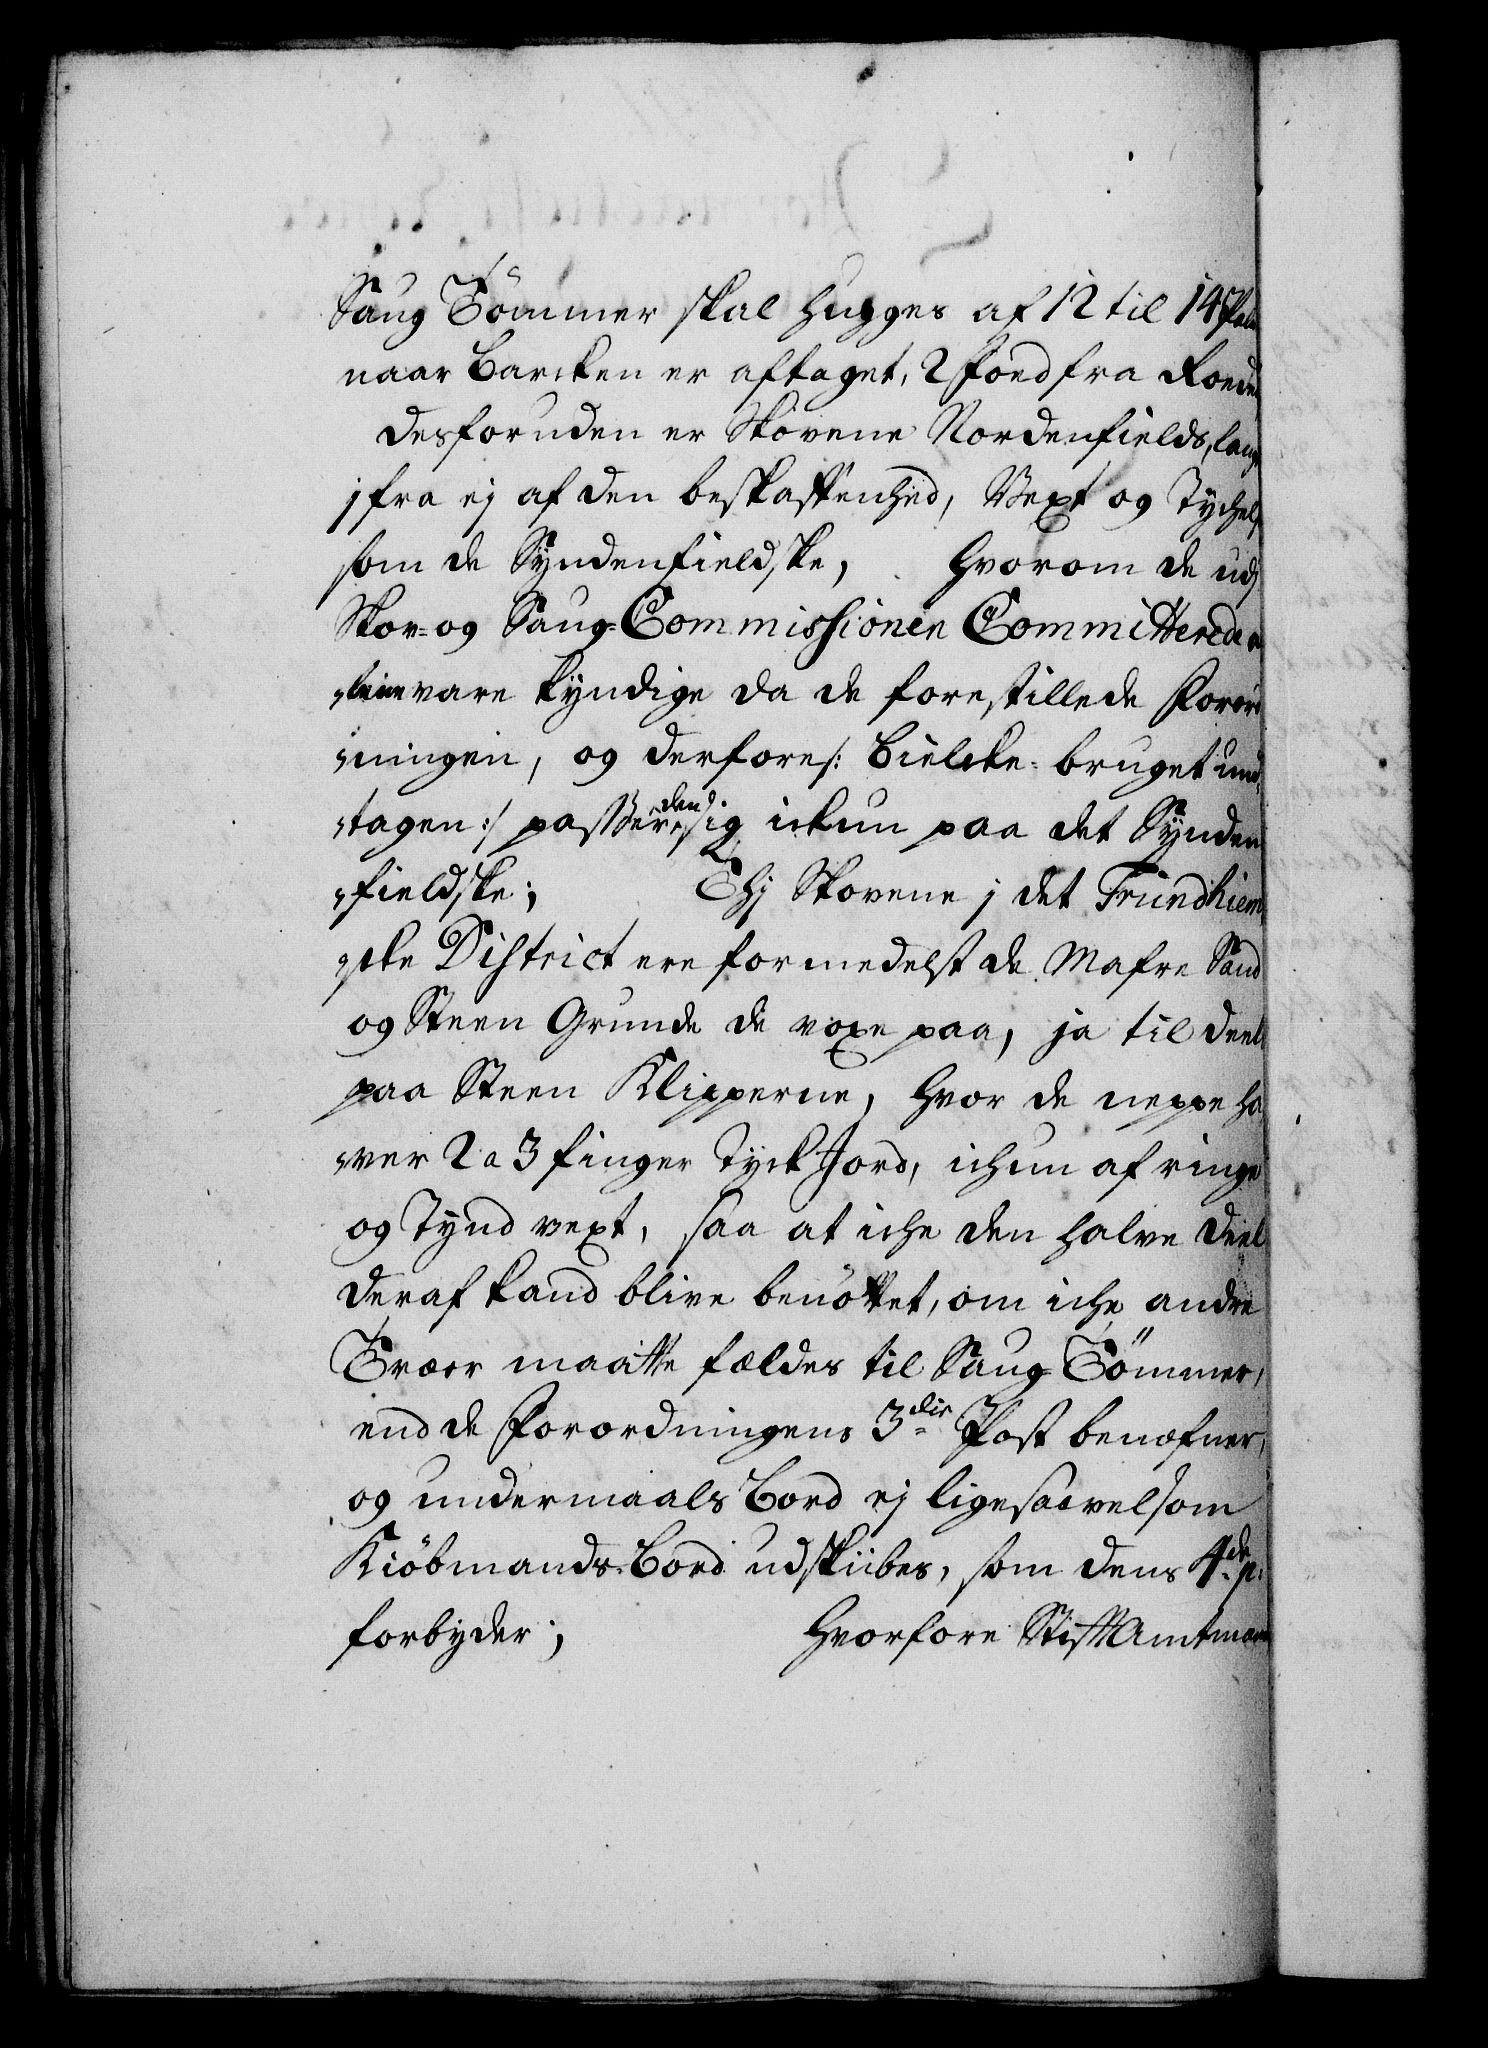 Saug Tömmer skal hugges af 12 til 14 Palm
naar Barcken er aftaget, 2 Foed fra Roeden
desforuden er Skovene Nordenfields, lang
ifra ej af den beskaffenhed, Vext og Tychelse
som de Syndenfieldske, hvorom de udj
Skov= og Saug=Commissionen Committerede ey
vare kyndige da de forestillede Forord
ningen, og derfore /: Bielcke-bruget und
tagen :/ passer den sig ickun paa det Synden
fieldske; Thj Skovene j det Trundhiem
ske District ere formedelst de Mafre Sand
og Steen Grunde de voxe paa, ja til deels
paa Steen Klipperne, hvor de neppe ha
ver 2 a 3 finger Tyck Jord, ickun af ringe
og Tynd vext, saa at iche den halve Deel
deraf kand blive benöttet, om iche andre
Træer maatte fældes til Saug Tömmer,
end de Forordningens 3die Post benæfner,
og undermaals Bord ej ligesaavel som
Kiöbmands-Bord udskibes, som dens 4de p:
forbyder; hvorfore Stiftamtmand